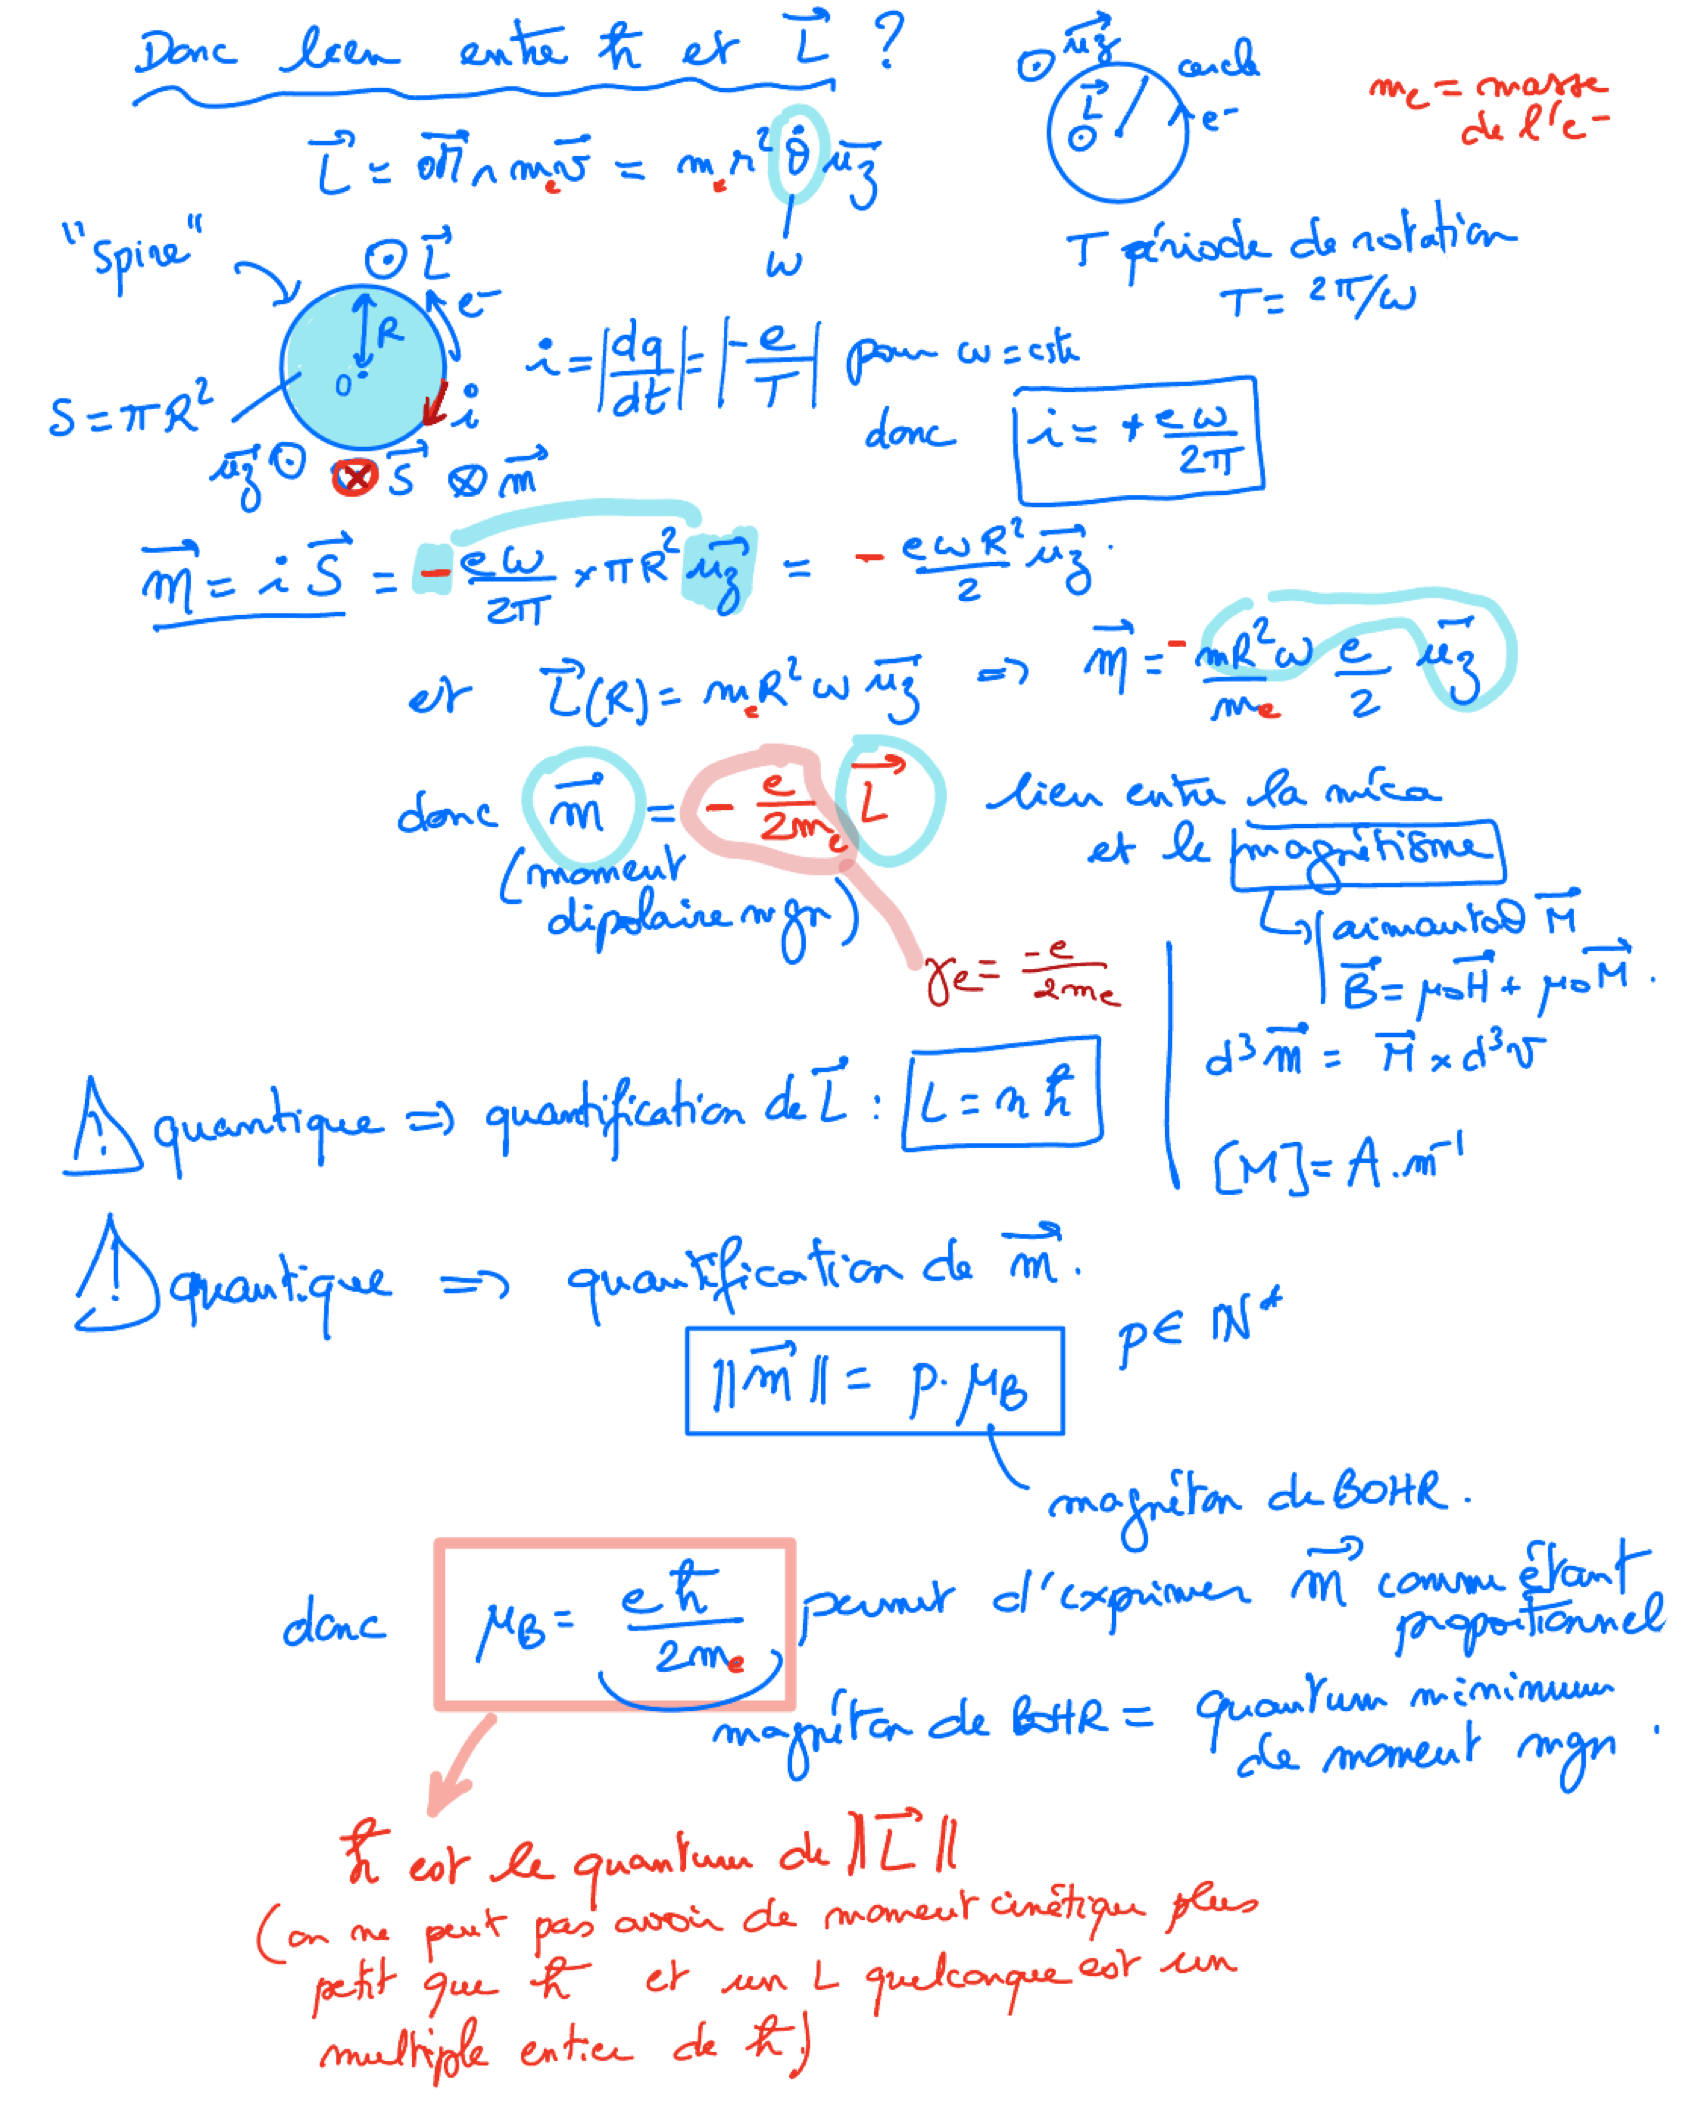 Donc lien entre ħ et L⃗ ?
u⃗z
cercle
L⃗
e⁻
me = masse
de l'e⁻
L⃗ = OM⃗ ∧ me v⃗ = me r² θ̇ u⃗z
ω
T période de rotation
T = 2π/ω
"Spire"
L⃗
e⁻
R
O
i
S = πR²
u⃗z
S⃗
m⃗
i = |dq/dt| = |-e/T| pour ω = cste
donc i = + eω/2π
m⃗ = i S⃗ = - eω/2π × πR² u⃗z = - eωR²/2 u⃗z.
et L⃗(R) = me R² ω u⃗z => m⃗ = - mR²ω/me e/2 u⃗z
donc m⃗ = - e/2me L⃗ lien entre la méca
et le magnétisme
(moment
dipolaire mgn)
γe = -e/2me
aimantat° M⃗
B⃗ = μ0H⃗ + μ0M⃗.
d³m⃗ = M⃗ × d³v
[M] = A.m⁻¹
! quantique => quantification de L⃗ : L = nħ
! quantique => quantification de m⃗.
||m⃗|| = p. μB
p ∈ ℕ*
magnéton de BOHR.
donc μB = eħ/2me permet d'exprimer m⃗ comme étant
proportionnel
magnéton de BOHR = quantum minimum
de moment mgn.
ħ est le quantum de ||L⃗||
(on ne peut pas avoir de moment cinétique plus
petit que ħ et un L quelconque est un
multiple entier de ħ)